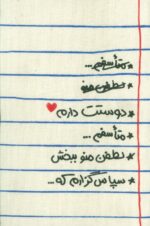 * متأسفم...
* لطفن منو
* دوستت دارم ♥
* متأسفم...
* لطفن منو ببخش
* سپاس گزارم که...